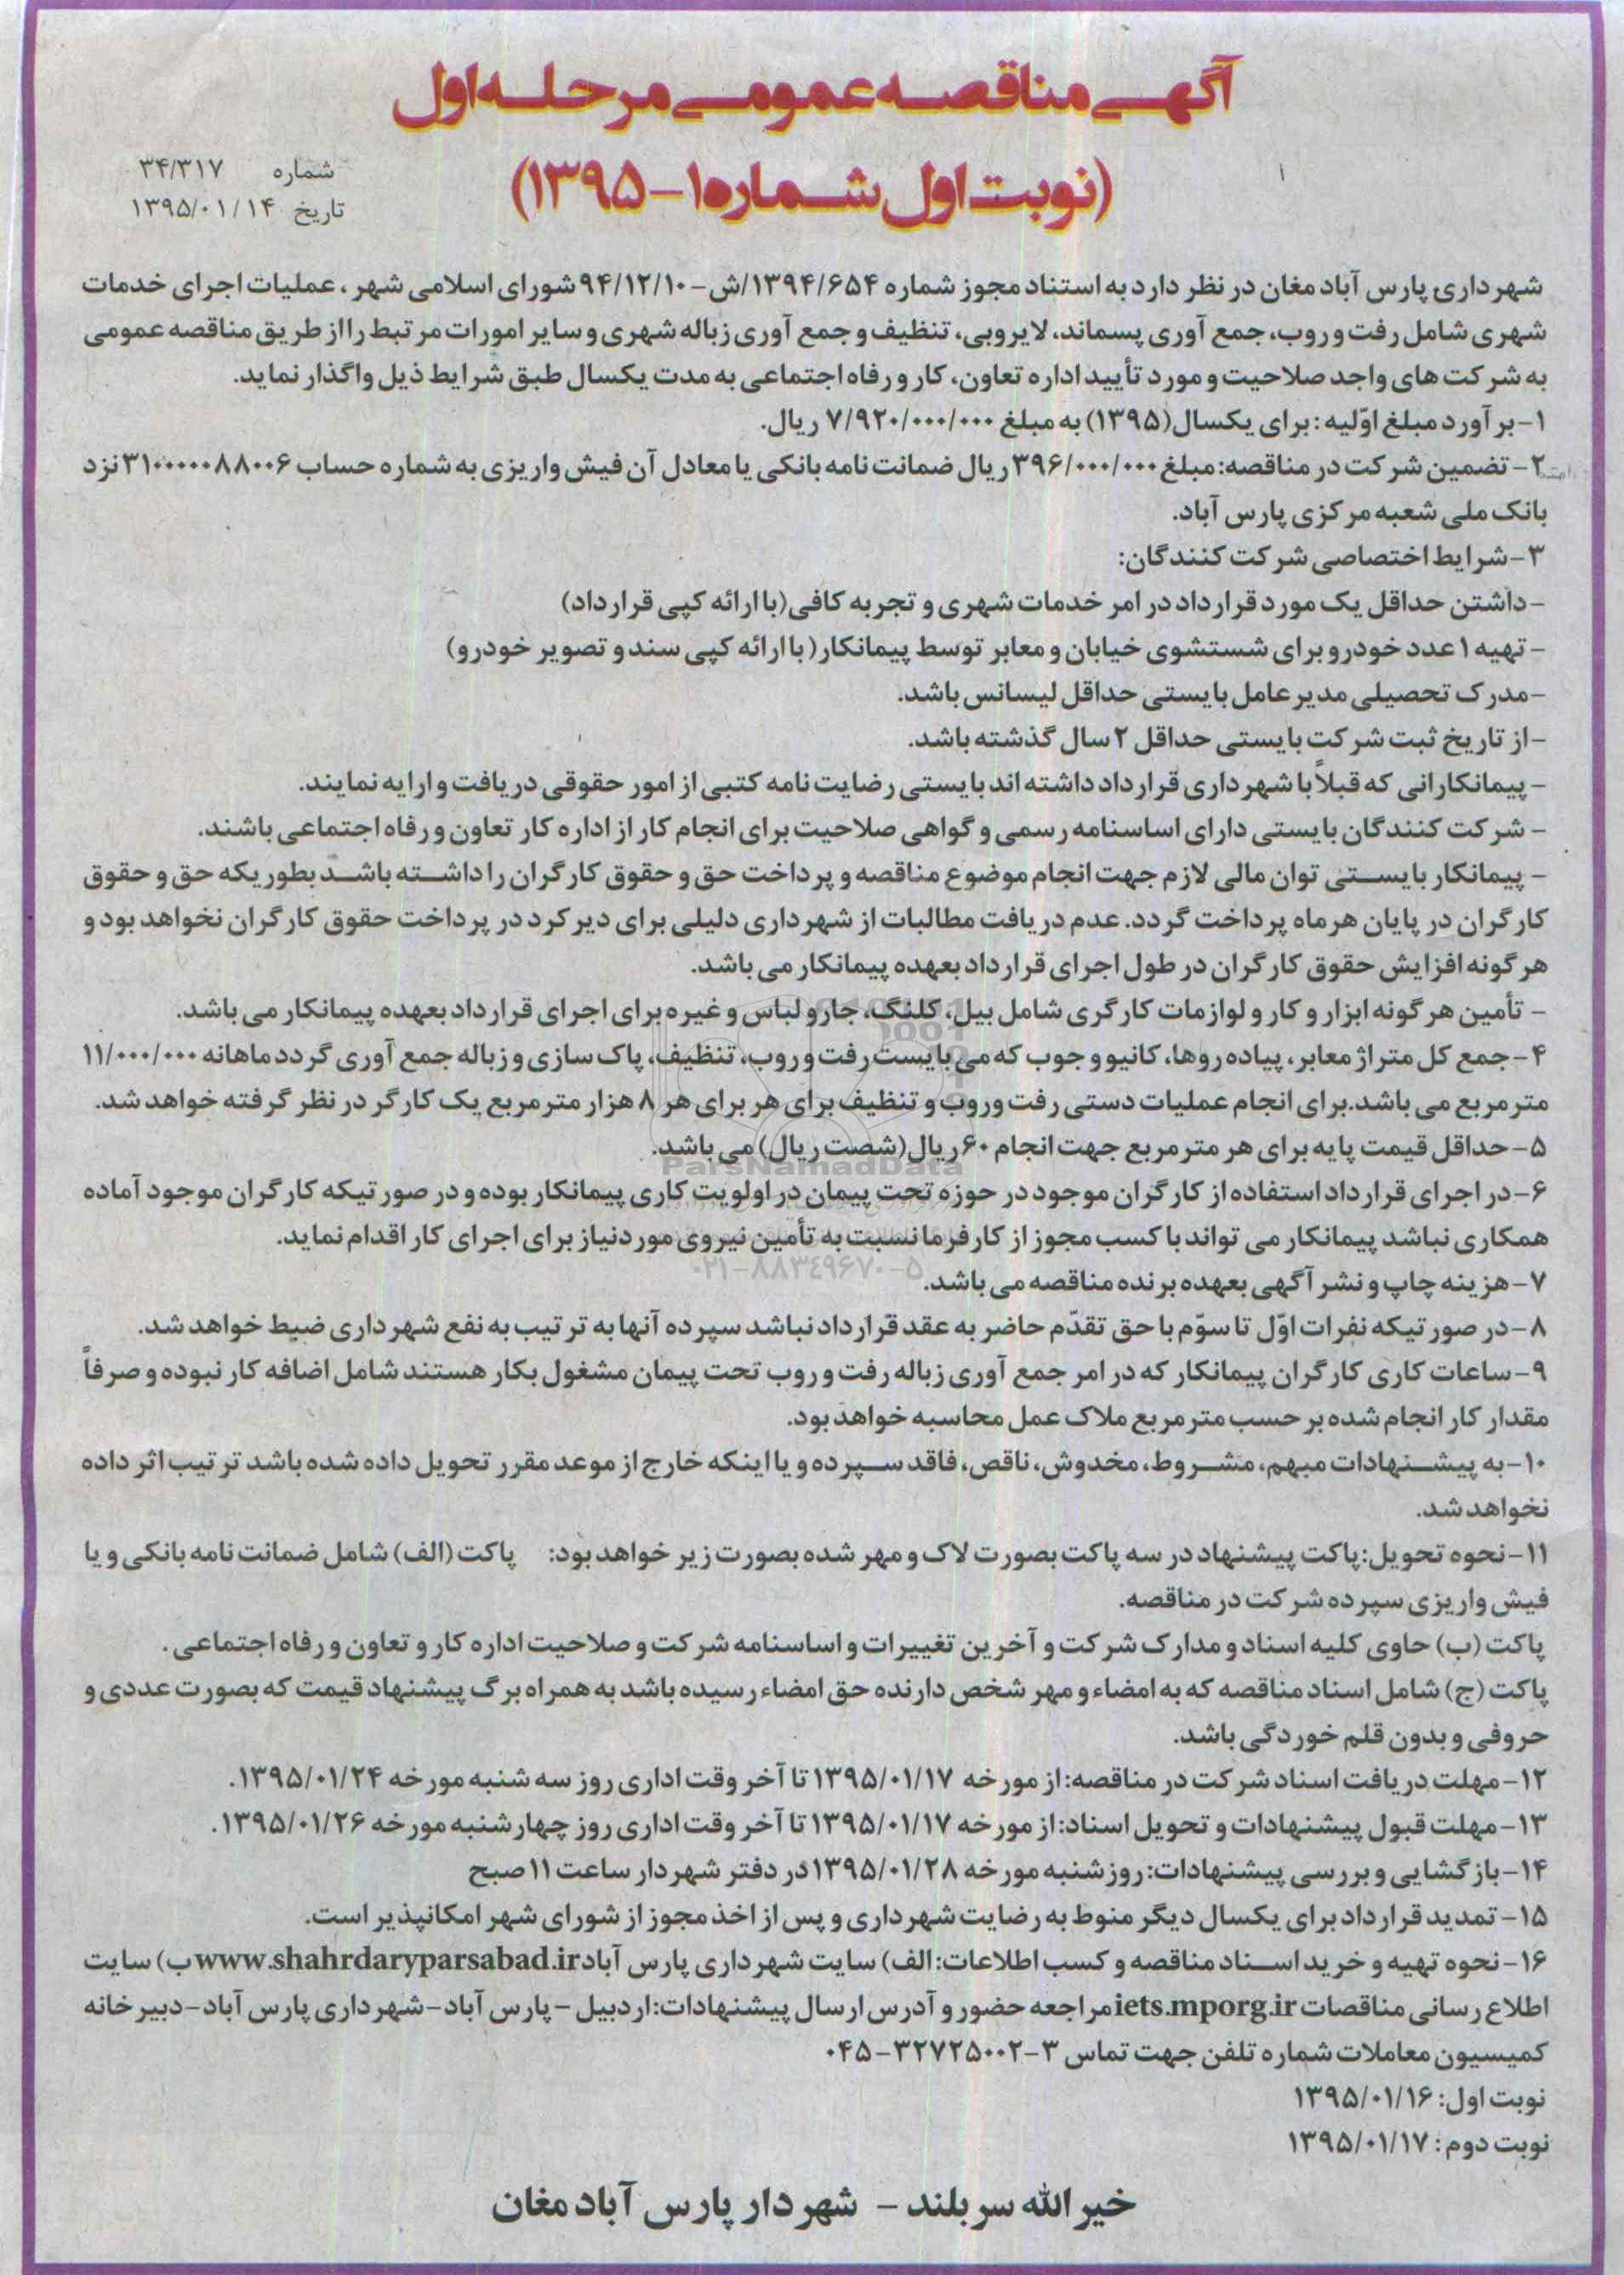 آگهی مناقصه عمومی مرحله اول
(نوبت اول شماره ۱-۱۳۹۵)
شماره ۳۴/۳۱۷
تاریخ ۱۳۹۵/۰۱/۱۴
شهرداری پارس آباد مغان در نظر دارد به استناد مجوز شماره ۱۳۹۴/۶۵۴/ش-۹۴/۱۲/۱۰ شورای اسلامی شهر، عملیات اجرای خدمات
شهری شامل رفت و روب، جمع آوری پسماند، لایروبی، تنظیف و جمع آوری زباله شهری و سایر امورات مرتبط را از طریق مناقصه عمومی
به شرکت های واجد صلاحیت و مورد تأیید اداره تعاون، کار و رفاه اجتماعی به مدت یکسال طبق شرایط ذیل واگذار نماید.
۱- برآورد مبلغ اوّلیه: برای یکسال (۱۳۹۵) به مبلغ ۷/۹۲۰/۰۰۰/۰۰۰ ریال.
۲- تضمین شرکت در مناقصه: مبلغ ۳۹۶/۰۰۰/۰۰۰ ریال ضمانت نامه بانکی یا معادل آن فیش واریزی به شماره حساب ۳۱۰۰۰۰۰۸۸۰۰۶ نزد
بانک ملی شعبه مرکزی پارس آباد.
۳- شرایط اختصاصی شرکت کنندگان:
- داشتن حداقل یک مورد قرارداد در امر خدمات شهری و تجربه کافی (با ارائه کپی قرارداد)
- تهیه ۱ عدد خودرو برای شستشوی خیابان و معابر توسط پیمانکار (با ارائه کپی سند و تصویر خودرو)
- مدرک تحصیلی مدیرعامل بایستی حداقل لیسانس باشد.
- از تاریخ ثبت شرکت بایستی حداقل ۲ سال گذشته باشد.
- پیمانکارانی که قبلاً با شهرداری قرارداد داشته اند بایستی رضایت نامه کتبی از امور حقوقی دریافت و ارایه نمایند.
- شرکت کنندگان بایستی دارای اساسنامه رسمی و گواهی صلاحیت برای انجام کار از اداره کار تعاون و رفاه اجتماعی باشند.
- پیمانکار بایستی توان مالی لازم جهت انجام موضوع مناقصه و پرداخت حق و حقوق کارگران را داشته باشد بطوریکه حق و حقوق
کارگران در پایان هر ماه پرداخت گردد. عدم دریافت مطالبات از شهرداری دلیلی برای دیرکرد در پرداخت حقوق کارگران نخواهد بود و
هر گونه افزایش حقوق کارگران در طول اجرای قرارداد بعهده پیمانکار می باشد.
- تأمین هر گونه ابزار و کار و لوازمات کارگری شامل بیل، کلنگ، جارو لباس و غیره برای اجرای قرارداد بعهده پیمانکار می باشد.
۴- جمع کل متراژ معابر، پیاده روها، کانیو و جوب که می بایست رفت و روب، تنظیف، پاک سازی و زباله جمع آوری گردد ماهانه ۱۱/۰۰۰/۰۰۰
متر مربع می باشد. برای انجام عملیات دستی رفت وروب و تنظیف برای هر برای هر ۸ هزار متر مربع یک کارگر در نظر گرفته خواهد شد.
۵- حداقل قیمت پایه برای هر متر مربع جهت انجام ۶۰ ریال (شصت ریال) می باشد.
ParsNamadData
۶- در اجرای قرارداد استفاده از کارگران موجود در حوزه تحت پیمان در اولویت کاری پیمانکار بوده و در صورتیکه کارگران موجود آماده
همکاری نباشد پیمانکار می تواند با کسب مجوز از کارفرما نسبت به تأمین نیروی موردنیاز برای اجرای کار اقدام نماید.
۰۲۱-۸۸۳۴۹۶۷۰-۵
۷- هزینه چاپ و نشر آگهی بعهده برنده مناقصه می باشد.
۸- در صورتیکه نفرات اوّل تا سوّم با حق تقدّم حاضر به عقد قرارداد نباشد سپرده آنها به ترتیب به نفع شهرداری ضبط خواهد شد.
۹- ساعات کاری کارگران پیمانکار که در امر جمع آوری زباله رفت و روب تحت پیمان مشغول بکار هستند شامل اضافه کار نبوده و صرفاً
مقدار کار انجام شده بر حسب متر مربع ملاک عمل محاسبه خواهد بود.
۱۰- به پیشنهادات مبهم، مشروط، مخدوش، ناقص، فاقد سپرده و یا اینکه خارج از موعد مقرر تحویل داده شده باشد ترتیب اثر داده
نخواهد شد.
۱۱- نحوه تحویل: پاکت پیشنهاد در سه پاکت بصورت لاک و مهر شده بصورت زیر خواهد بود: پاکت (الف) شامل ضمانت نامه بانکی و یا
فیش واریزی سپرده شرکت در مناقصه.
پاکت (ب) حاوی کلیه اسناد و مدارک شرکت و آخرین تغییرات و اساسنامه شرکت و صلاحیت اداره کار و تعاون و رفاه اجتماعی.
پاکت (ج) شامل اسناد مناقصه که به امضاء و مهر شخص دارنده حق امضاء رسیده باشد به همراه برگ پیشنهاد قیمت که بصورت عددی و
حروفی و بدون قلم خوردگی باشد.
۱۲- مهلت دریافت اسناد شرکت در مناقصه: از مورخه ۱۳۹۵/۰۱/۱۷ تا آخر وقت اداری روز سه شنبه مورخه ۱۳۹۵/۰۱/۲۴.
۱۳- مهلت قبول پیشنهادات و تحویل اسناد: از مورخه ۱۳۹۵/۰۱/۱۷ تا آخر وقت اداری روز چهارشنبه مورخه ۱۳۹۵/۰۱/۲۶.
۱۴- بازگشایی و بررسی پیشنهادات: روز شنبه مورخه ۱۳۹۵/۰۱/۲۸ در دفتر شهردار ساعت ۱۱ صبح
۱۵- تمدید قرارداد برای یکسال دیگر منوط به رضایت شهرداری و پس از اخذ مجوز از شورای شهر امکانپذیر است.
۱۶- نحوه تهیه و خرید اسناد مناقصه و کسب اطلاعات: الف) سایت شهرداری پارس آباد www.shahrdaryparsabad.ir ب) سایت
اطلاع رسانی مناقصات iets.mporg.ir مراجعه حضور و آدرس ارسال پیشنهادات: اردبیل - پارس آباد - شهرداری پارس آباد - دبیرخانه
کمیسیون معاملات شماره تلفن جهت تماس ۳-۳۲۷۲۵۰۰۲-۰۴۵
نوبت اول: ۱۳۹۵/۰۱/۱۶
نوبت دوم: ۱۳۹۵/۰۱/۱۷
خیرالله سربلند - شهردار پارس آباد مغان